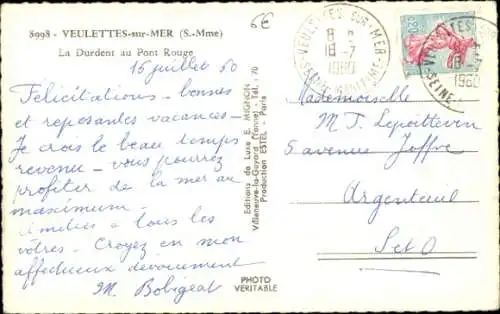 8998 - VEULETTES-sur-MER (S.-Mme)
La Durdent au Pont Rouge
6€
15 juillet 60
Félicitations - bonnes
et reposantes vacances -
Je crois le beau temps
revenu - vous pourrez
profiter de la mer au
maximum -
Amitiés à tous les
vôtres - Croyez en mon
affectueux dévouement
M. Bobigeat
Editions de Luxe E. MIGNON
Villeneuve-la-Guyard (Yonne) Tél. : 70
Production ESTEL - Paris
PHOTO
VERITABLE
VEULETTES-SUR-MER
18-7
1960
SEINE-MARITIME
0,20
Mademoiselle
M T. Lepoitteven
5 avenue Joffre
Argenteuil
S et O